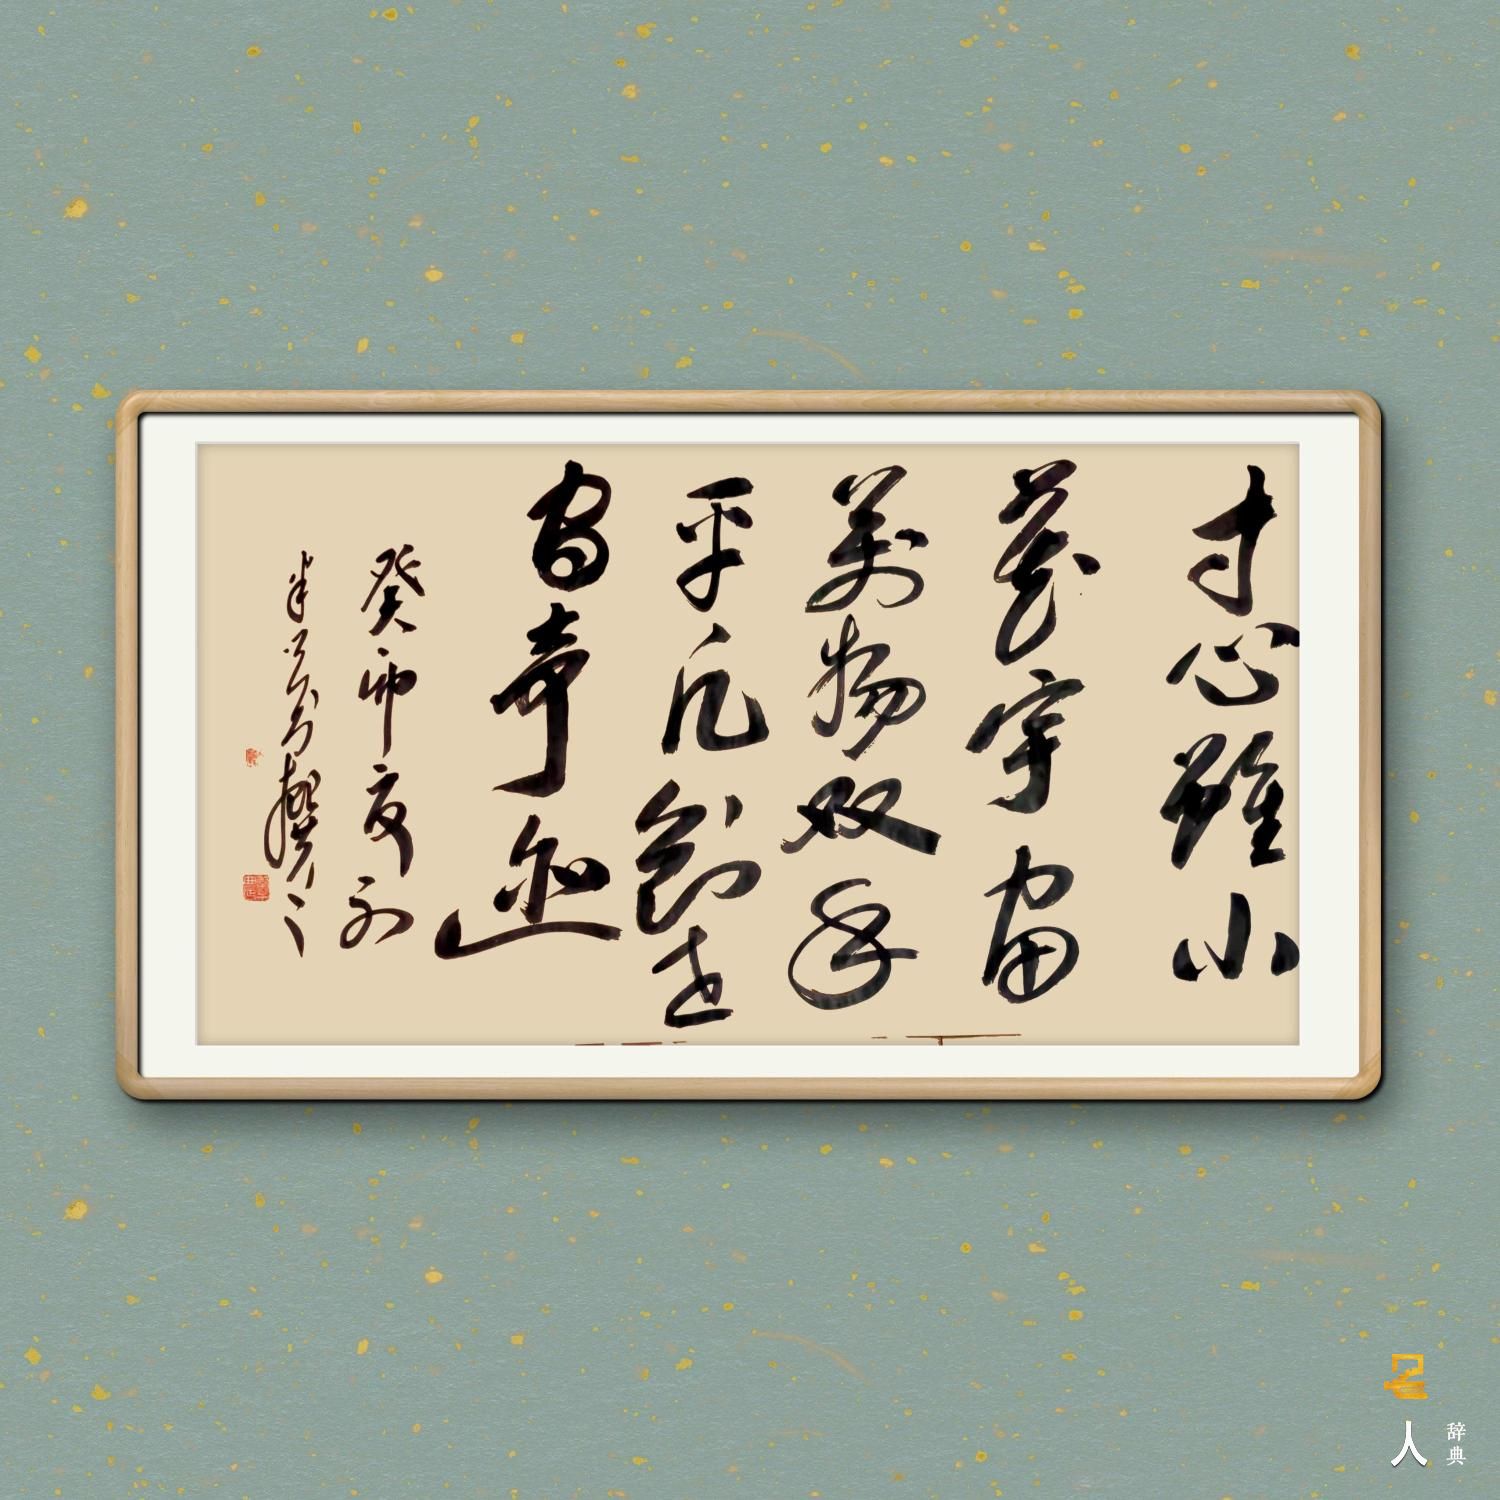 寸心雖小
藏宇宙
萬物双手
平凡創世
間奇迹
癸卯夏
名人
辞典